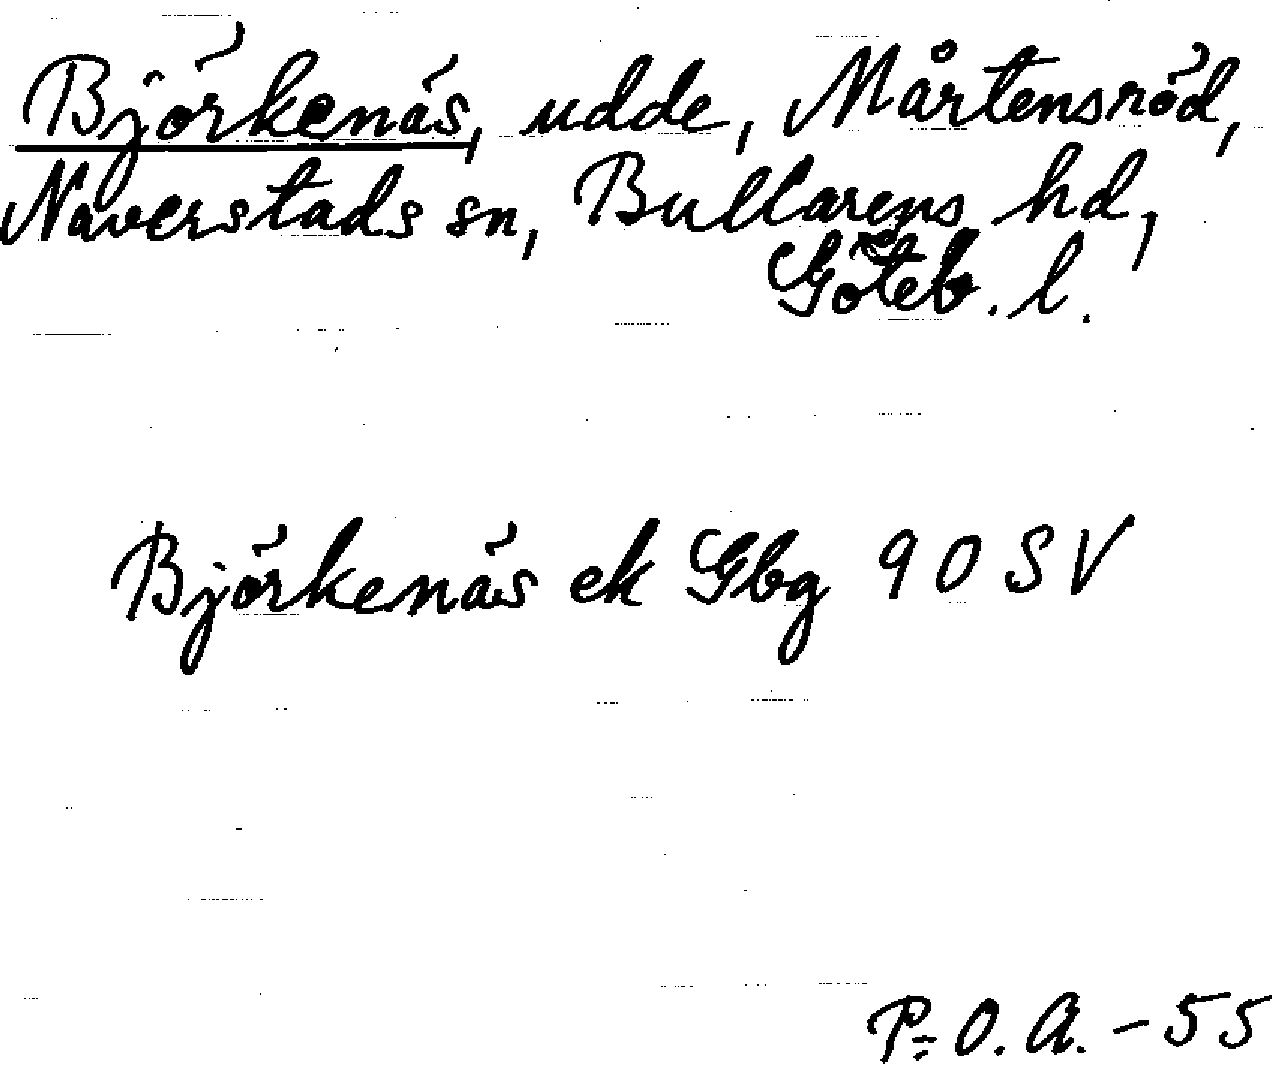 Björkenäs, udde, Mårtensröd,
Naverstads sn, Bullarens hd,
Göteb. l.
Björkenäs ek Gbg 90 SV
P:O. A. - 55